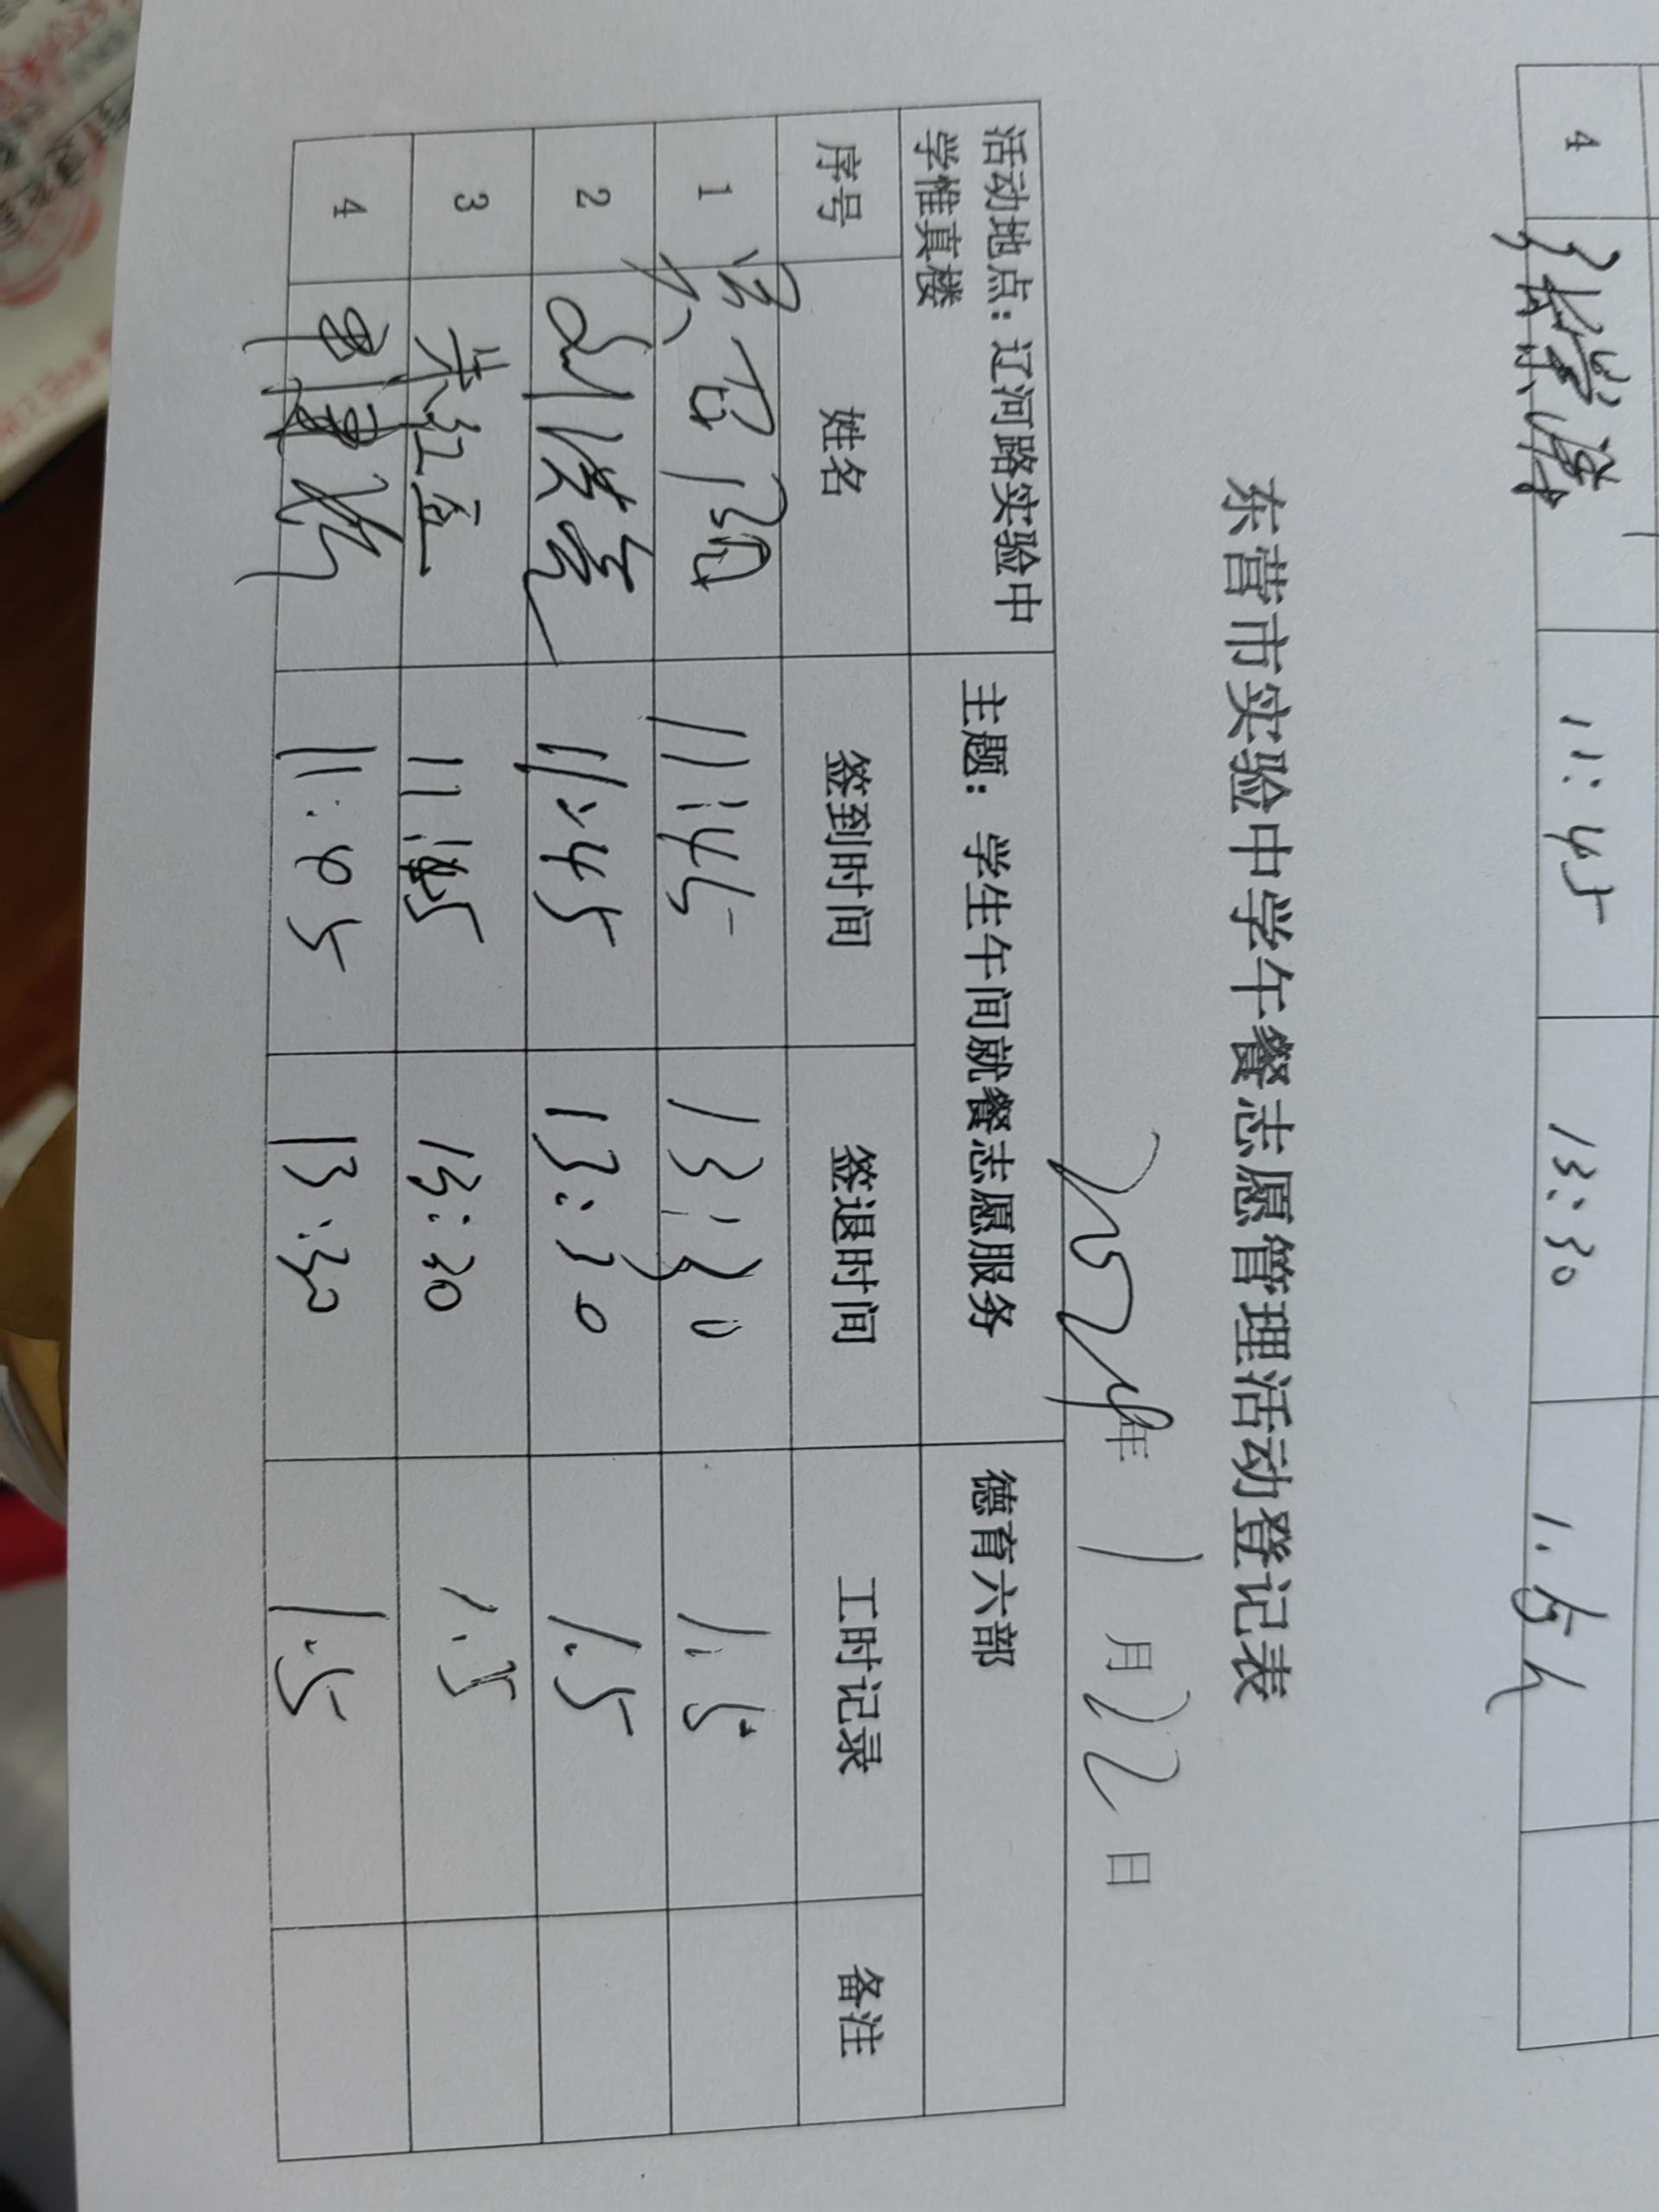 4 11:45 13:30 1.5h
东营市实验中学午餐志愿管理活动登记表
2024年 1 月 22 日
活动地点：辽河路实验中 主题：学生午间就餐志愿服务 德育六部
学惟真楼
序号 姓名 签到时间 签退时间 工时记录 备注
1 11:45 13:30 1.5
2 11:45 13:30 1.5
3 11:45 13:30 1.5
4 11:45 13:30 1.5